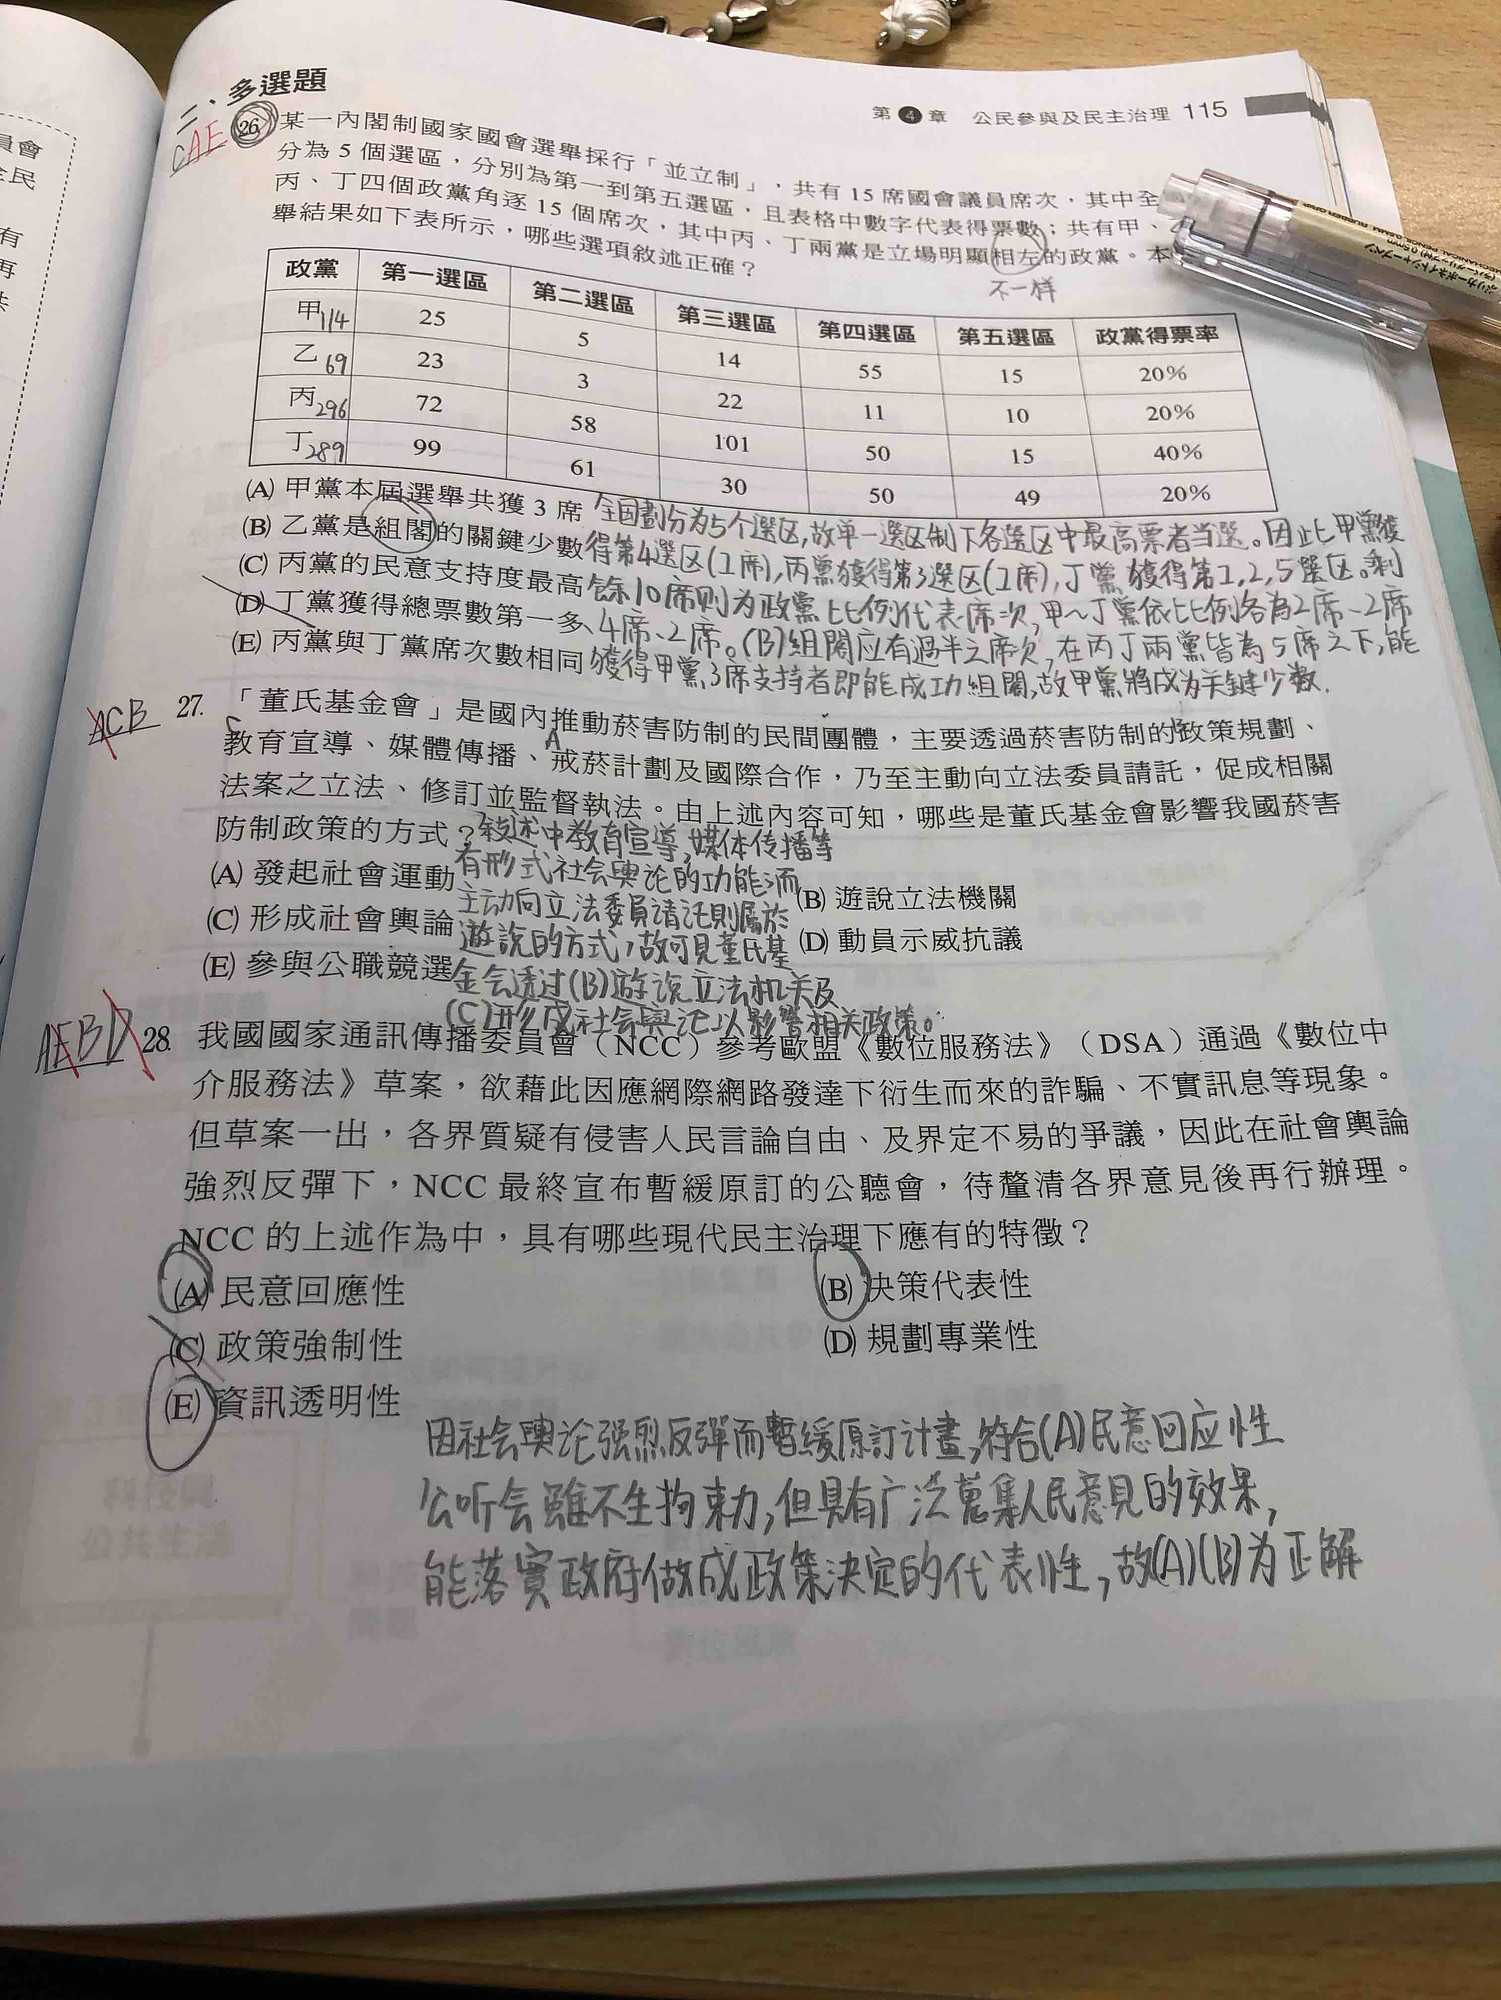 員會
全民
有
再
第 4 章 公民參與及民主治理 115
二、多選題
CAE
26. 某一內閣制國家國會選舉採行「並立制」，共有 15 席國會議員席次，其中全
分為 5 個選區，分別為第一到第五選區，且表格中數字代表得票數；共有甲、乙
丙、丁四個政黨角逐 15 個席次，其中丙、丁兩黨是立場明顯相左的政黨。本
舉結果如下表所示，哪些選項敘述正確？
不一样
政黨 第一選區 第二選區 第三選區 第四選區 第五選區 政黨得票率
甲114 25 5 14 55 15 20%
乙69 23 3 22 11 10 20%
丙296 72 58 101 50 15 40%
丁289 99 61 30 50 49 20%
(A) 甲黨本屆選舉共獲 3 席
(B) 乙黨是組閣的關鍵少數
(C) 丙黨的民意支持度最高
(D) 丁黨獲得總票數第一多
(E) 丙黨與丁黨席次數相同
全国劃分为5个選区,故单一選区制下各選区中最高票者当選。因此甲黨獲
得第4選区(1席),丙黨獲得第3選区(1席),丁黨獲得第1,2,5選区。剩
餘10席則为政黨比例代表席次,甲~丁黨依比例各為2席、2席
、4席、2席。(B)組閣应有過半之席次,在丙丁兩黨皆為5席之下,能
獲得甲黨3席支持者即能成功組閣,故甲黨將成为关键少数.
ACB
27. 「董氏基金會」是國內推動菸害防制的民間團體，主要透過菸害防制的政策規劃、
C
A
教育宣導、媒體傳播、戒菸計劃及國際合作，乃至主動向立法委員請託，促成相關
法案之立法、修訂並監督執法。由上述內容可知，哪些是董氏基金會影響我國菸害
防制政策的方式？
(A) 發起社會運動
(B) 遊說立法機關
(C) 形成社會輿論
(D) 動員示威抗議
(E) 參與公職競選
敍述中教育宣導,媒体传播等
有形式社会輿论的功能;而
主动向立法委員請託則屬於
遊說的方式,故可見董氏基
金会透过(B)遊说立法机关及
(C)形成社会輿论以影響相关政策。
AEBD
28. 我國國家通訊傳播委員會（NCC）參考歐盟《數位服務法》（DSA）通過《數位中
介服務法》草案，欲藉此因應網際網路發達下衍生而來的詐騙、不實訊息等現象。
但草案一出，各界質疑有侵害人民言論自由、及界定不易的爭議，因此在社會輿論
強烈反彈下，NCC 最終宣布暫緩原訂的公聽會，待釐清各界意見後再行辦理。
NCC 的上述作為中，具有哪些現代民主治理下應有的特徵？
(A) 民意回應性
(B) 決策代表性
(C) 政策強制性
(D) 規劃專業性
(E) 資訊透明性
因社会輿论强烈反彈而暫緩原訂计畫,符合(A)民意回应性
公听会雖不生拘束力,但具有广泛蒐集人民意見的效果,
能落實政府做成政策決定的代表性,故(A)(B)为正解